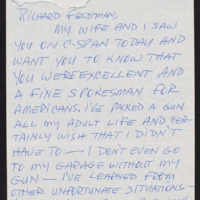 RICHARD FELDMAN,
MY WIFE AND I SAW
YOU ON C-SPAN TODAY AND
WANT YOU TO KNOW THAT
YOU WERE EXCELLENT AND
A FINE SPOKESMAN FOR
AMERICANS. I'VE PACKED A GUN
ALL MY ADULT LIFE AND CER-
TAINLY WISH THAT I DIDN'T
HAVE TO — I DON'T EVEN GO
TO MY GARAGE WITHOUT MY
GUN — I'VE LEARNED FROM
OTHER UNFORTUNATE SITUATIONS —